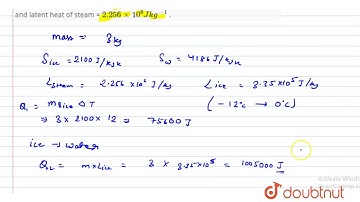 and latent heat of steam = 2.256 × 10⁶ J kg⁻¹ .
mass = 3kg
Sice = 2100 J/kgk Sw = 4186 J/kgk
Lsteam = 2.256 ×10⁶ J/kg Lice = 3.35×10⁵ J/kg
Q₁ = m sice ΔT (-12°c → 0°c)
⇒ 3 × 2100 × 12 ⇒ 75600 J
ice → water
Q₂ = m×Lice = 3 × 3.35×10⁵ = 1005000 J
Activate Windo
doubtnut